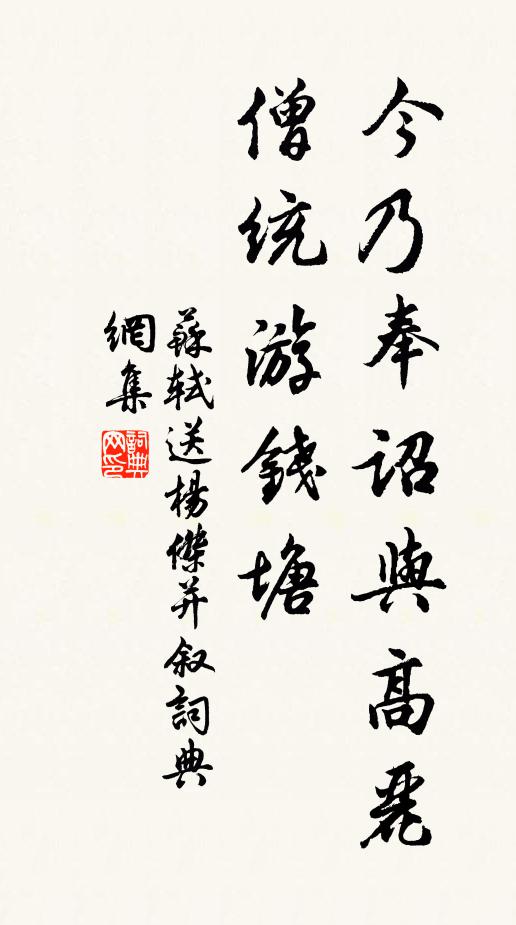 今乃奉詔與高麗
僧統游錢塘
蘇軾送楊傑并叙詞典
網集
詞典
网印